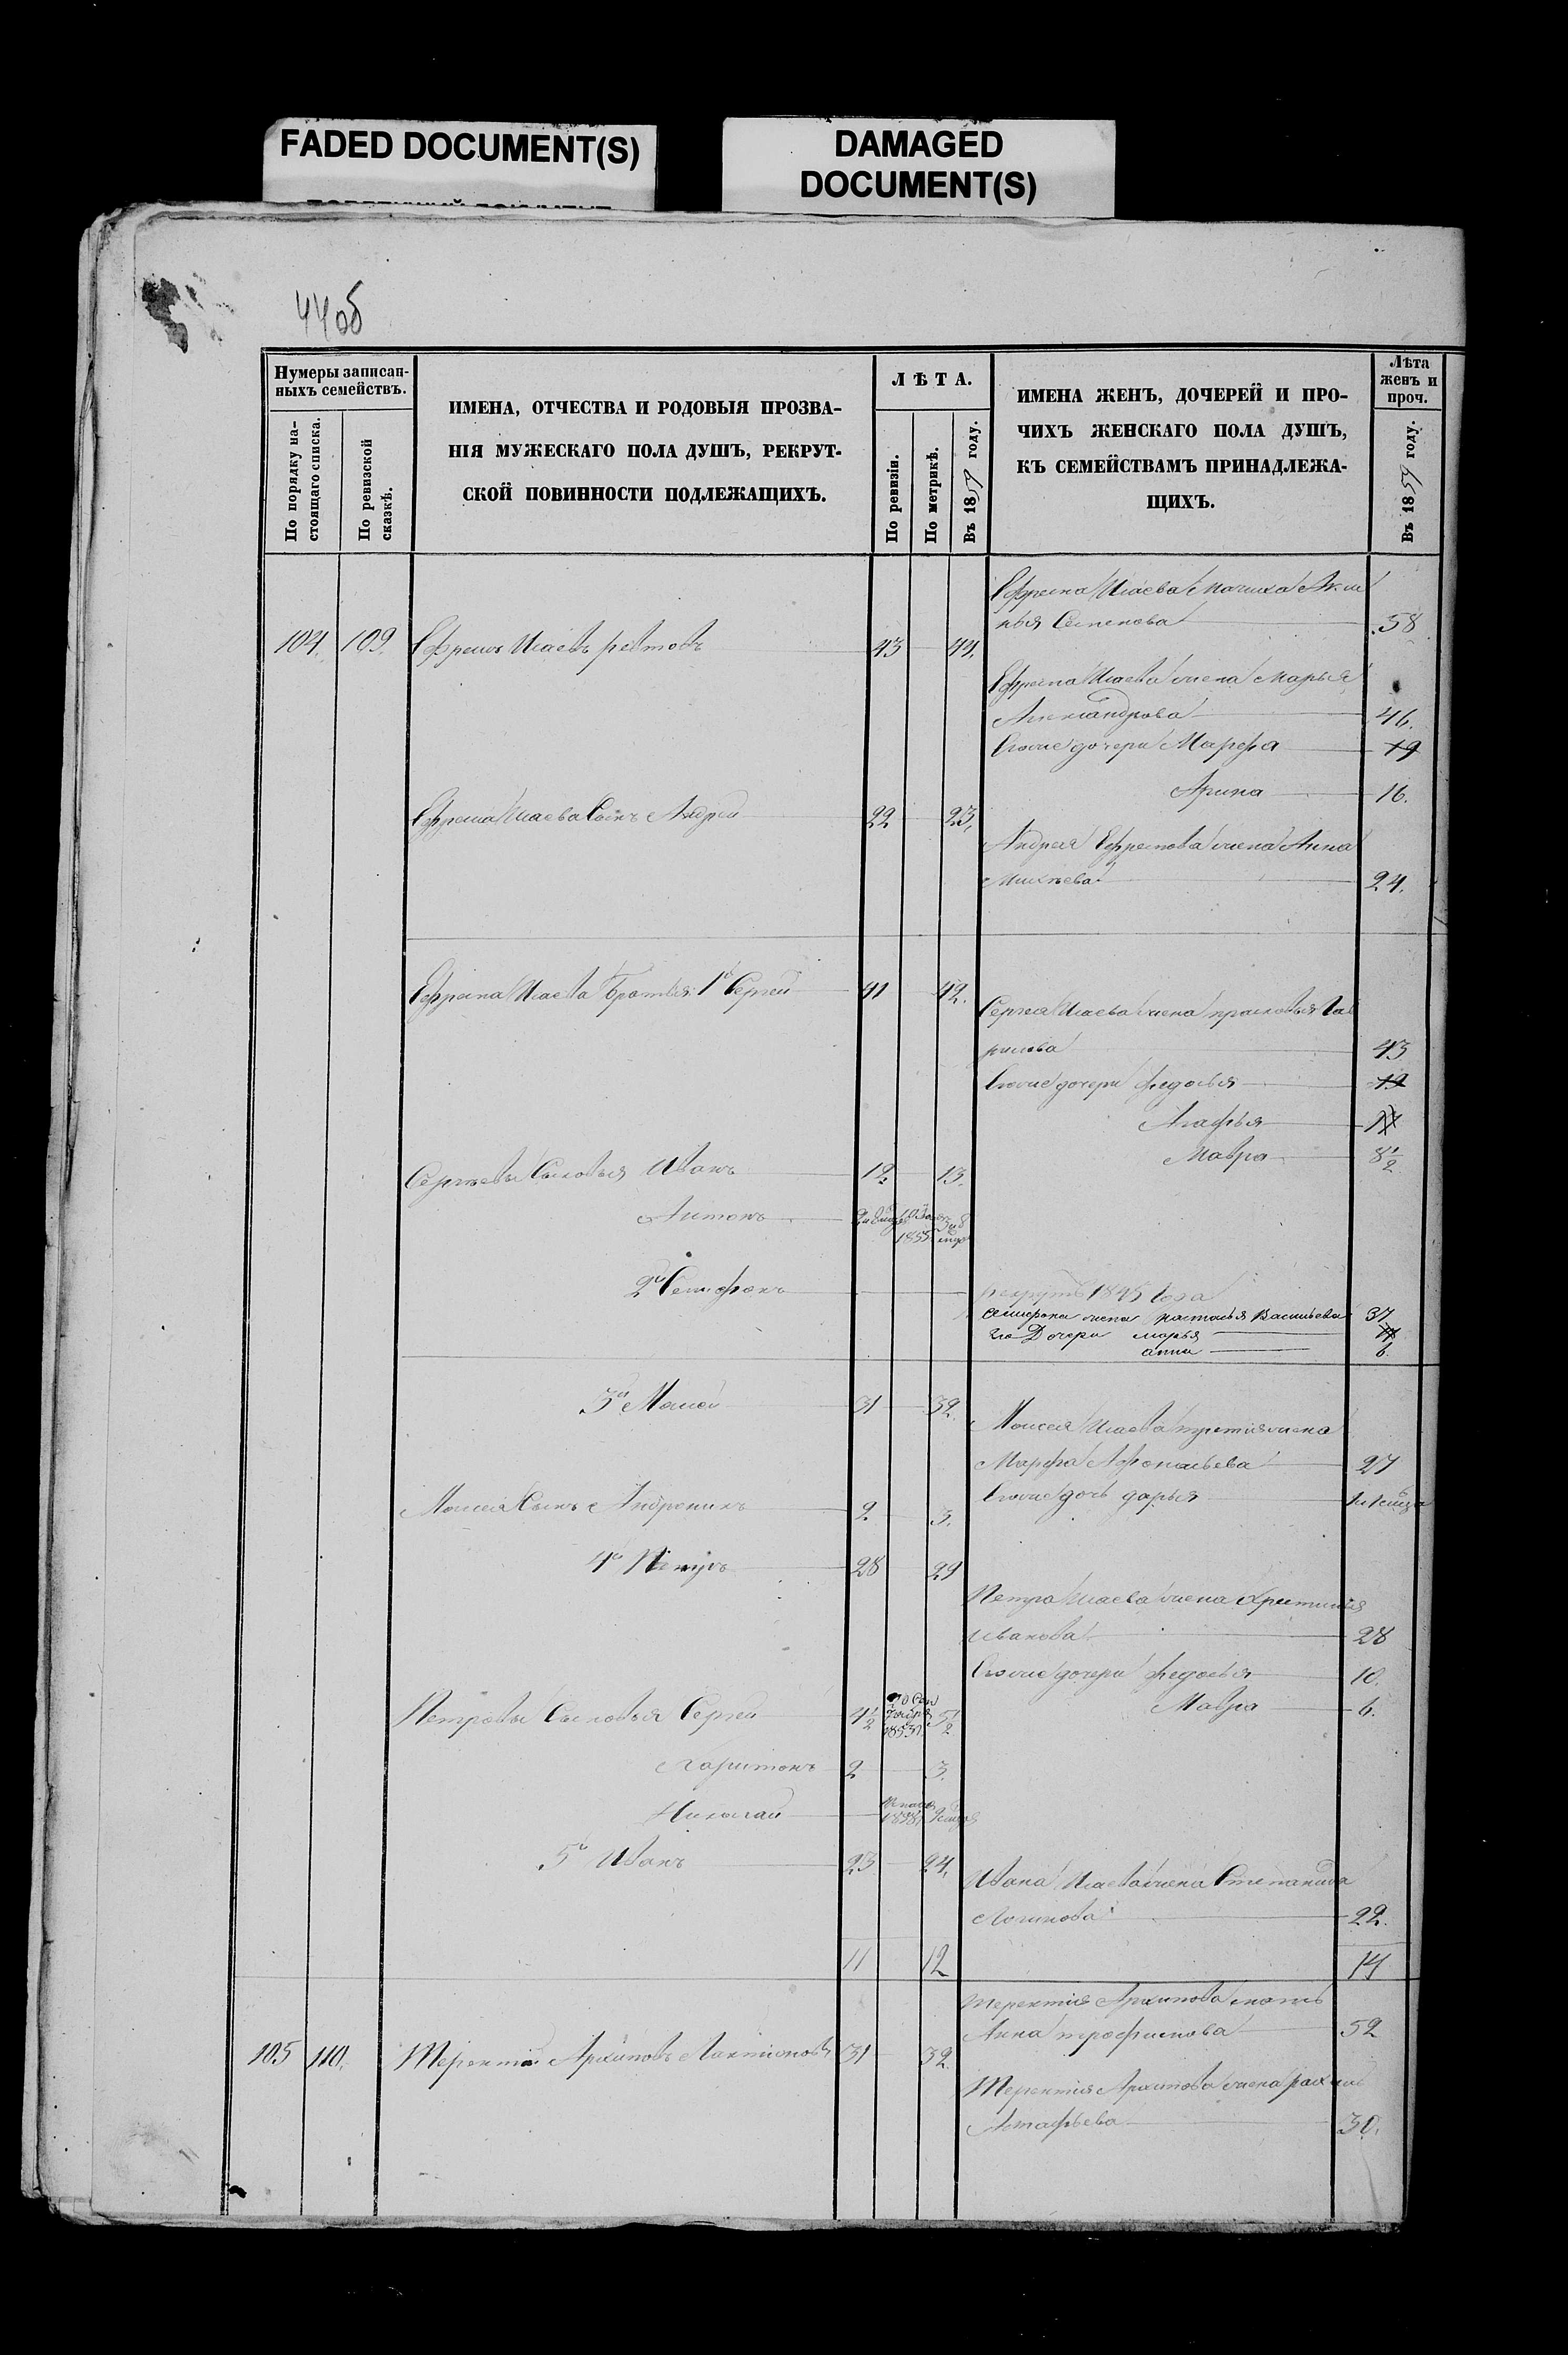 FADED DOCUMENT(S)
DAMAGED
DOCUMENT(S)
44об
Нумеры записан-
ныхъ семействъ.
По порядку на-
стоящаго списка.
По ревизской
сказкѣ.
ИМЕНА, ОТЧЕСТВА И РОДОВЫЯ ПРОЗВА-
НІЯ МУЖЕСКАГО ПОЛА ДУШЪ, РЕКРУТ-
СКОЙ ПОВИННОСТИ ПОДЛЕЖАЩИХЪ.
ЛѢТА.
По ревизіи.
По метрикѣ.
Въ 1859 году.
ИМЕНА ЖЕНЪ, ДОЧЕРЕЙ И ПРО-
ЧИХЪ ЖЕНСКАГО ПОЛА ДУШЪ,
КЪ СЕМЕЙСТВАМЪ ПРИНАДЛЕЖА-
ЩИХЪ.
Лѣта
женъ и
проч.
Въ 1859 году.
Ефрема Исаева Мачиха Аксі
нья Семенова 58
104. 109. Ефремъ Исаевъ 43 44.
Ефрема Исаева жена Марья
Александрова 46.
Егоже дочери Марфа 19
Арина 16.
Ефрема Исаева Сынъ Андрей 22 23,
Андрея Ефремова жена Анна
Михѣева 24.
Ефрема Исаева Братья 1й Сергей 41 42.
Сергея Исаева жена прасковья Гав
рилова 43
Егоже дочери федосья 19
Агафья 17
Мавра 8 1/2
Сергѣевы Сыновья Иванъ 12 13.
Антонъ 1855
2й Семифонъ
рекрутъ 1845 Года
Семифона жена настасья Васильева 37
Его Дочери марья
анна 6.
3й Моисей 31 32.
Моисея Исаева третія жена
Марфа Афонасьева 27
Егоже дочь дарья
Моисея Сынъ Андроникъ 2 3.
4й Петръ 28 29
Петра Исаева жена Хритинья
Иванова 28
Егоже дочери федосья 10.
Мавра 6.
Петровы Сыновья Сергей 4 1/2 5 1/2
Харитонъ 2 3.
Николай 1858
5й Иванъ 23 24.
Ивана Исаева жена Степанида
Логинова 22.
11 12 14
Терентия Архипова мать
Анна трофимова 52
105 110. Терентій Архиповъ Лактіоновъ 31 32.
Терентия Архипова жена
Астафьева 30.